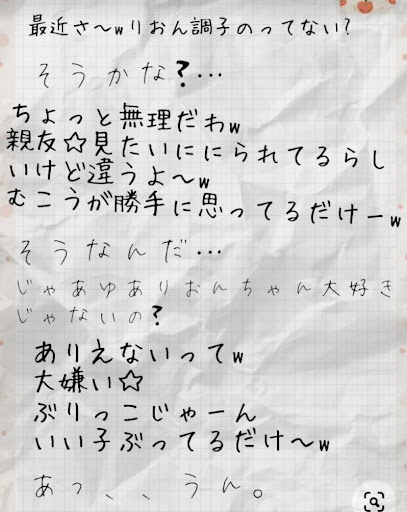 最近さ〜wりおん調子のってない?
そうかな?…
ちょっと無理だわw
親友☆見たいににられてるらし
いけど違うよ〜w
むこうが勝手に思ってるだけーw
そうなんだ…
じゃあゆありおんちゃん大好き
じゃないの?
ありえないってw
大嫌い☆
ぶりっこじゃーん
いい子ぶってるだけ〜w
あっ、、うん。